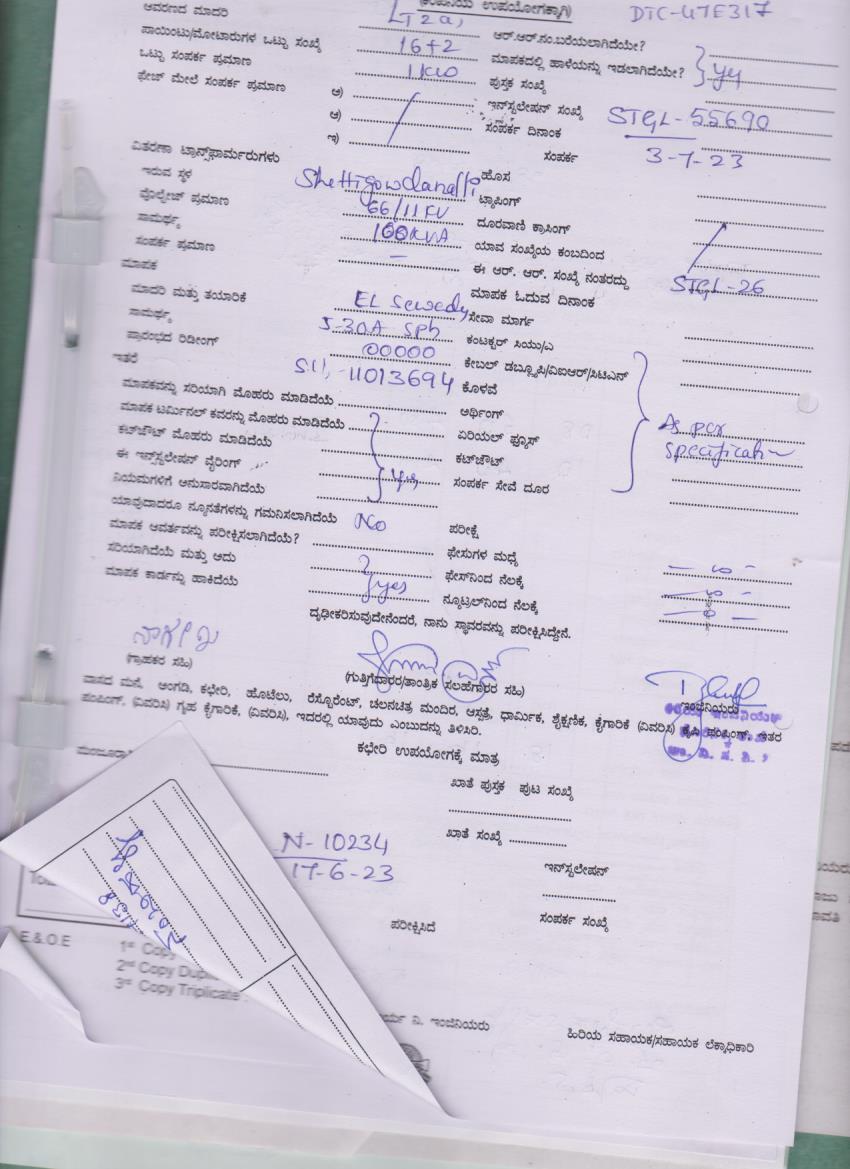 (ಕಂಪನಿಯ ಉಪಯೋಗಕ್ಕಾಗಿ) DTC-47E317
ಆವರಣದ ಮಾದರಿ LT2a, ಆರ್.ಆರ್.ನಂ.ಬರೆಯಲಾಗಿದೆಯೇ?
ಪಾಯಿಂಟು/ಮೋಟಾರುಗಳ ಒಟ್ಟು ಸಂಖ್ಯೆ 16+2 ಮಾಪಕದಲ್ಲಿ ಹಾಳೆಯನ್ನು ಇಡಲಾಗಿದೆಯೇ? yes
ಒಟ್ಟು ಸಂಪರ್ಕ ಪ್ರಮಾಣ 1KW ಪುಸ್ತಕ ಸಂಖ್ಯೆ
ಫೇಜ್ ಮೇಲೆ ಸಂಪರ್ಕ ಪ್ರಮಾಣ ಅ) ಇನ್‌ಸ್ಟಲೇಷನ್ ಸಂಖ್ಯೆ STGL-55690
ಆ) ಸಂಪರ್ಕ ದಿನಾಂಕ 3-7-23
ಇ) ಸಂಪರ್ಕ
ವಿತರಣಾ ಟ್ರಾನ್ಸ್‌ಫಾರ್ಮರುಗಳು ಹೊಸ
ಇರುವ ಸ್ಥಳ Shettigowdanalli ಟ್ಯಾಪಿಂಗ್
ವೊಲ್ಟೇಜ್ ಪ್ರಮಾಣ 66/11KV ದೂರವಾಣಿ ಕ್ರಾಸಿಂಗ್
ಸಾಮರ್ಥ್ಯ 100KVA ಯಾವ ಸಂಖ್ಯೆಯ ಕಂಬದಿಂದ
ಸಂಪರ್ಕ ಪ್ರಮಾಣ – ಈ ಆರ್. ಆರ್. ಸಂಖ್ಯೆ ನಂತರದ್ದು STGL-26
ಮಾಪಕ ಮಾಪಕ ಓದುವ ದಿನಾಂಕ
ಮಾದರಿ ಮತ್ತು ತಯಾರಿಕೆ EL Sewedy ಸೇವಾ ಮಾರ್ಗ
ಸಾಮರ್ಥ್ಯ 5-30A Sph ಕಂಟಕ್ಟರ್ ಸಿಯು/ಎ
ಪ್ರಾರಂಭದ ರಿಡೀಂಗ್ 00000 ಕೇಬಲ್ ಡಬ್ಲ್ಯೂಪಿ/ವಿಐಆರ್/ಸಿಟಿಎನ್
ಇತರೆ 11013694 ಕೊಳವೆ
ಮಾಪಕವನ್ನು ಸರಿಯಾಗಿ ಮೊಹರು ಮಾಡಿದೆಯೆ ಅರ್ಥಿಂಗ್ As per
ಮಾಪಕ ಟರ್ಮಿನಲ್ ಕವರನ್ನು ಮೊಹರು ಮಾಡಿದೆಯೆ ಏರಿಯಲ್ ಫ್ಯೂಸ್ specification
ಕಟ್‌ಔಟ್ ಮೊಹರು ಮಾಡಿದೆಯೆ ಕಟ್‌ಔಟ್
ಈ ಇನ್‌ಸ್ಟಲೇಷನ್ ವೈರಿಂಗ್ yes ಸಂಪರ್ಕ ಸೇವೆ ದೂರ
ನಿಯಮಗಳಿಗೆ ಅನುಸಾರವಾಗಿದೆಯೆ
ಯಾವುದಾದರೂ ನ್ಯೂನತೆಗಳನ್ನು ಗಮನಿಸಲಾಗಿದೆಯೆ No ಪರೀಕ್ಷೆ
ಮಾಪಕ ಆವರ್ತವನ್ನು ಪರೀಕ್ಷಿಸಲಾಗಿದೆಯೆ? ಫೇಸುಗಳ ಮಧ್ಯೆ
ಸರಿಯಾಗಿದೆಯೆ ಮತ್ತು ಅದು ಫೇಸ್‌ನಿಂದ ನೆಲಕ್ಕೆ
ಮಾಪಕ ಕಾರ್ಡನ್ನು ಹಾಕಿದೆಯೆ yes ನ್ಯೂಟ್ರಲ್‌ನಿಂದ ನೆಲಕ್ಕೆ
ದೃಢೀಕರಿಸುವುದೇನೆಂದರೆ, ನಾನು ಸ್ಥಾವರವನ್ನು ಪರೀಕ್ಷಿಸಿದ್ದೇನೆ.
(ಗ್ರಾಹಕರ ಸಹಿ) (ಗುತ್ತಿಗೆದಾರರ/ತಾಂತ್ರಿಕ ಸಲಹೆಗಾರರ ಸಹಿ) ಇಂಜಿನಿಯರು
ವಾಸದ ಮನೆ, ಅಂಗಡಿ, ಕಛೇರಿ, ಹೊಟೆಲು, ರೆಸ್ಟೋರೆಂಟ್, ಚಲನಚಿತ್ರ ಮಂದಿರ, ಆಸ್ಪತ್ರೆ, ಧಾರ್ಮಿಕ, ಶೈಕ್ಷಣಿಕ, ಕೈಗಾರಿಕೆ (ವಿವರಿಸಿ) ಕೃಷಿ ಪಂಪಿಂಗ್, ಇತರ
ಪಂಪಿಂಗ್, (ವಿವರಿಸಿ) ಗೃಹ ಕೈಗಾರಿಕೆ, (ವಿವರಿಸಿ), ಇದರಲ್ಲಿ ಯಾವುದು ಎಂಬುದನ್ನು ತಿಳಿಸಿರಿ.
ಕಛೇರಿ ಉಪಯೋಗಕ್ಕೆ ಮಾತ್ರ
ಖಾತೆ ಪುಸ್ತಕ ಪುಟ ಸಂಖ್ಯೆ
N-10234 ಖಾತೆ ಸಂಖ್ಯೆ
17-6-23 ಇನ್‌ಸ್ಟಲೇಷನ್
ಪರೀಕ್ಷಿಸಿದೆ ಸಂಪರ್ಕ ಸಂಖ್ಯೆ
E.&.O.E 1st Copy
2nd Copy Dup
3rd Copy Triplicate
ಇಂಜಿನಿಯರು ಹಿರಿಯ ಸಹಾಯಕ/ಸಹಾಯಕ ಲೆಕ್ಕಾಧಿಕಾರಿ